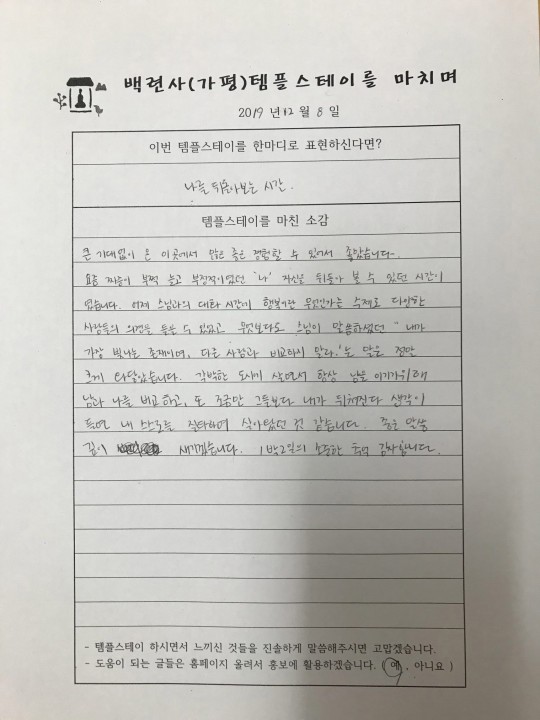 백련사(가평)템플스테이를 마치며
2019 년 12 월 8 일
이번 템플스테이를 한마디로 표현하신다면?
나를 뒤돌아보는 시간.
템플스테이를 마친 소감
큰 기대없이 온 이곳에서 많은 것을 경험할 수 있어서 좋았습니다.
요즘 짜증이 부쩍 늘고 부정적이었던 '나' 자신을 뒤돌아 볼 수 있던 시간이
었습니다. 어제 스님과의 대화 시간에 행복이란 무엇인가는 주제로 다양한
사람들의 의견을 들을 수 있었고, 무엇보다도 스님이 말씀하셨던 "내가
가장 빛나는 존재이며, 다른 사람과 비교하지 말라.'는 말은 정말
크게 와닿았습니다. 각박한 도시에 살면서 항상 남을 이기기위해
남과 나를 비교하고, 또 조금만 그들보다 내가 뒤쳐진다 생각이
들면 내 스스로를 질타하며 살아왔던 것 같습니다. 좋은 말씀
깊이 새기겠습니다. 1박2일의 소중한 추억 감사합니다.
- 템플스테이 하시면서 느끼신 것들을 진솔하게 말씀해주시면 고맙겠습니다.
- 도움이 되는 글들은 홈페이지 올려서 홍보에 활용하겠습니다. ( 예 , 아니요 )